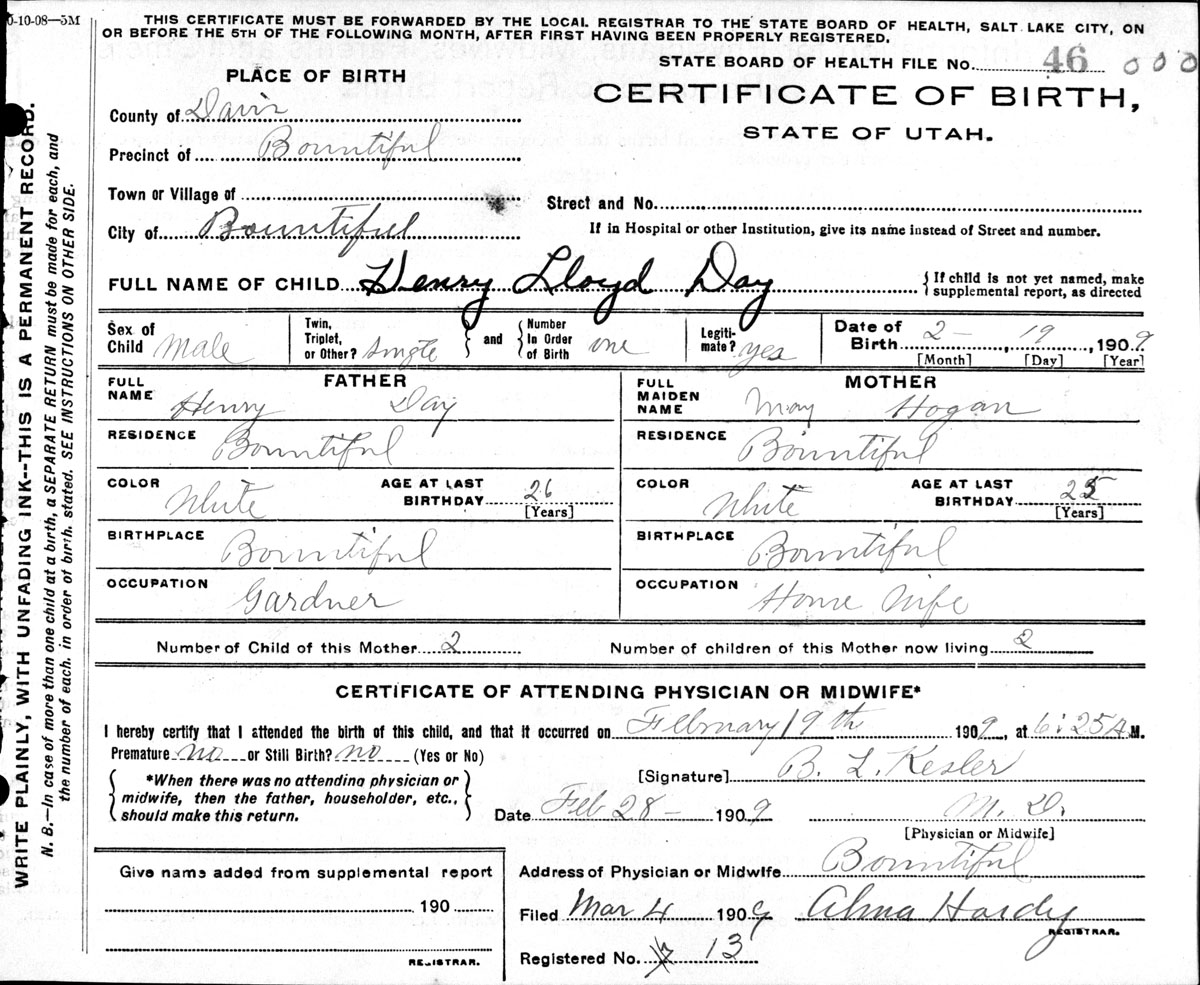 0-10-08—5M
THIS CERTIFICATE MUST BE FORWARDED BY THE LOCAL REGISTRAR TO THE STATE BOARD OF HEALTH, SALT LAKE CITY, ON
OR BEFORE THE 5TH OF THE FOLLOWING MONTH, AFTER FIRST HAVING BEEN PROPERLY REGISTERED.
STATE BOARD OF HEALTH FILE No. 46 000
PLACE OF BIRTH
CERTIFICATE OF BIRTH,
STATE OF UTAH.
County of Davis
Precinct of Bountiful
Town or Village of
Street and No.
City of Bountiful
If in Hospital or other Institution, give its name instead of Street and number.
FULL NAME OF CHILD Henry Lloyd Day
If child is not yet named, make
supplemental report, as directed
Sex of Child Male
Twin, Triplet, or Other? single
and
Number In Order of Birth one
Legiti-mate? yes
Date of Birth 2 - 19, 1909
[Month] [Day] [Year]
FATHER
FULL NAME Henry Day
RESIDENCE Bountiful
COLOR White
AGE AT LAST BIRTHDAY 26
[Years]
BIRTHPLACE Bountiful
OCCUPATION Gardner
MOTHER
FULL MAIDEN NAME May Hogan
RESIDENCE Bountiful
COLOR White
AGE AT LAST BIRTHDAY 25
[Years]
BIRTHPLACE Bountiful
OCCUPATION House Wife
Number of Child of this Mother 2
Number of children of this Mother now living 2
CERTIFICATE OF ATTENDING PHYSICIAN OR MIDWIFE*
I hereby certify that I attended the birth of this child, and that it occurred on February 19th 1909, at 6:25 A.M.
Premature no or Still Birth? no (Yes or No)
*When there was no attending physician or
midwife, then the father, householder, etc.,
should make this return.
[Signature] B. L. Kesler
Date Feb 28 - 1909 M. D.
[Physician or Midwife]
Give name added from supplemental report
190
REGISTRAR.
Address of Physician or Midwife Bountiful
Filed Mar 4 1909 Alma Hardy
REGISTRAR.
Registered No. 13
WRITE PLAINLY, WITH UNFADING INK--THIS IS A PERMANENT RECORD.
N. B.—In case of more than one child at a birth, a SEPARATE RETURN must be made for each, and
the number of each, in order of birth, stated. SEE INSTRUCTIONS ON OTHER SIDE.